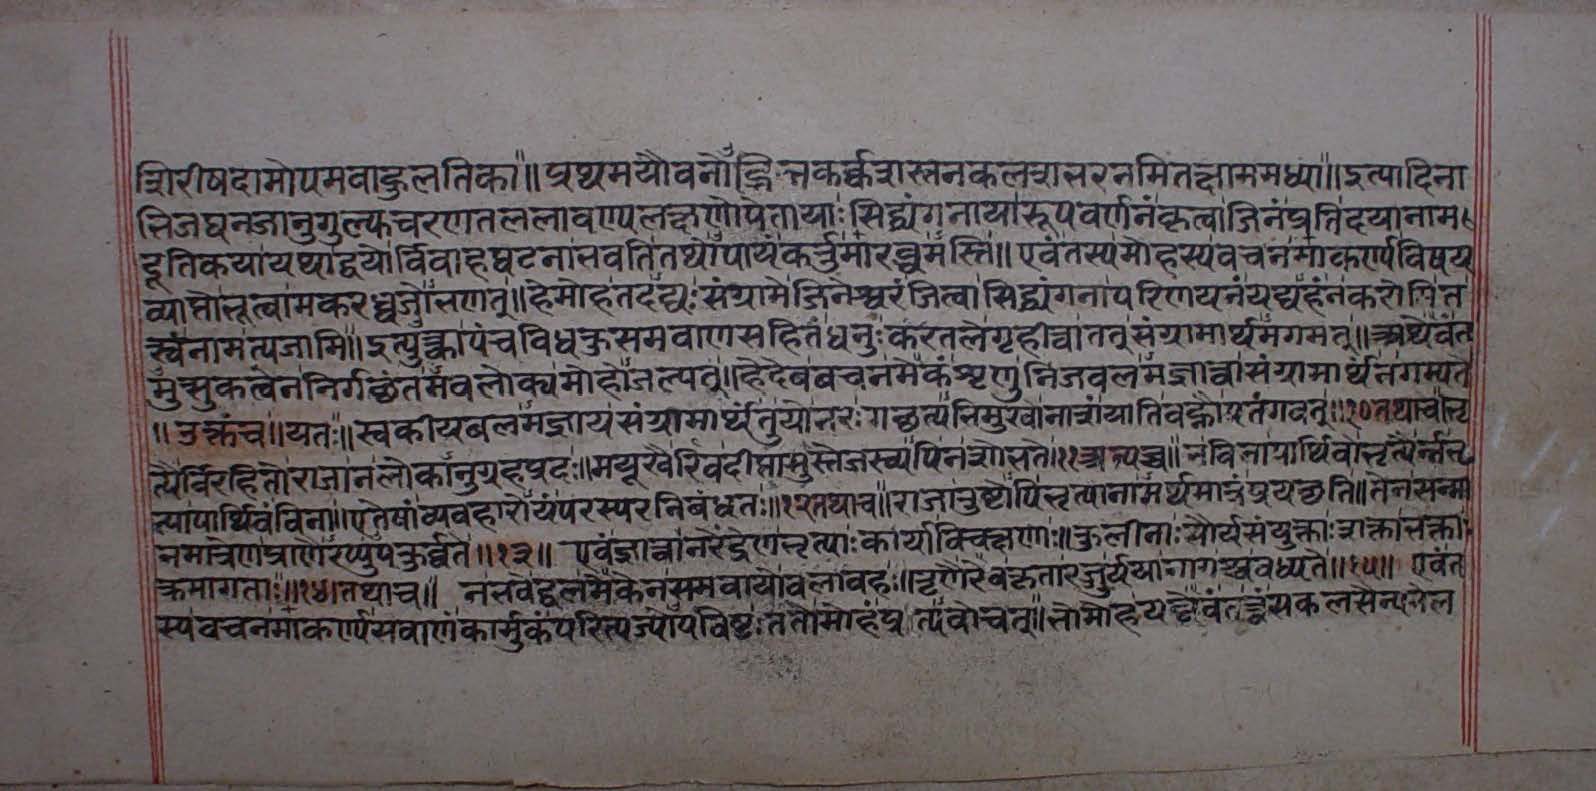 शिरीषदामोपमबाहुलतिका॥ प्रथमयौवनोद्भिन्नकर्कशस्तनकलशभरनमितक्षाममध्या॥ इत्यादिना
भिजघनजानुगुल्फचरणतललावण्यलक्षणोपेतायाः सिद्ध्यंगनाया रूपवर्णनं कृत्वा जिनं प्रति दयानाम
दूतिकया यथा द्वयोर्विवाहघटना भवति तथोपायं कर्त्तुमारब्धमस्ति॥ एवं तस्य मोहस्य वचनमाकर्ण्य विषय
व्याप्तो भूत्वा मकरध्वजोऽभणत्॥ हे मोह तदद्य संग्रामे जिनेश्वरं जित्वा सिद्ध्यंगनापरिणयनं यद्यहं न करोमि त
त्स्वं नाम त्यजामि॥ इत्युक्त्वा पंचविधकुसमबाणसहितं धनुः करतले गृहीत्वा तत् संग्रामार्थमगमत्॥ अथैवं त
मुत्सुकत्वेन निर्गच्छंतमवलोक्य मोहोऽजल्पत्॥ हे देव वचनमेकं श्रृणु निजबलमज्ञात्वा संग्रामार्थं न गम्यते
॥ उक्तं च॥ यतः॥ स्वकीयबलमज्ञाय संग्रामार्थं तु यो नरः गच्छत्यभिमुखो नाशं याति वह्नौ पतंगवत्॥१० तथा च॥ भृ
त्यैर्विरहितो राजा न लोकानुग्रहप्रदः॥ मयूखैरिव दीप्तांशुस्तेजस्व्यपि न शोभते॥११ अन्यच्च॥ न विना पार्थिवो भृत्यैर्न भृ
त्या पार्थिवं विना॥ एतेषां व्यवहारोयं परस्परनिबंधनः॥१२ तथा च॥ राजा तुष्टोपि भृत्यानामर्थमात्रं प्रयच्छति॥ तेन सन्मा
नमात्रेण प्राणैरप्युपकुर्वते॥१३॥ एवं ज्ञात्वा नरेंद्रेण भृत्याः कार्या विचक्षणाः॥ कुलीनाः शौर्यसंयुक्ताः शक्ता भक्ताः
क्रमागताः॥१४॥ तथा च॥ न भवेद्बलमेकेन समवायो बलावहः॥ तृणैरेव कृता रज्जुर्यया नागश्च बध्यते॥१५॥ एवं त
स्य वचनमाकर्ण्य सबाणं कार्मुकं परित्यज्योपविष्टः ततो मोहं प्रत्यवोचत्॥ भो मोह यद्येवं तत्त्वं सकलसैन्यमेल